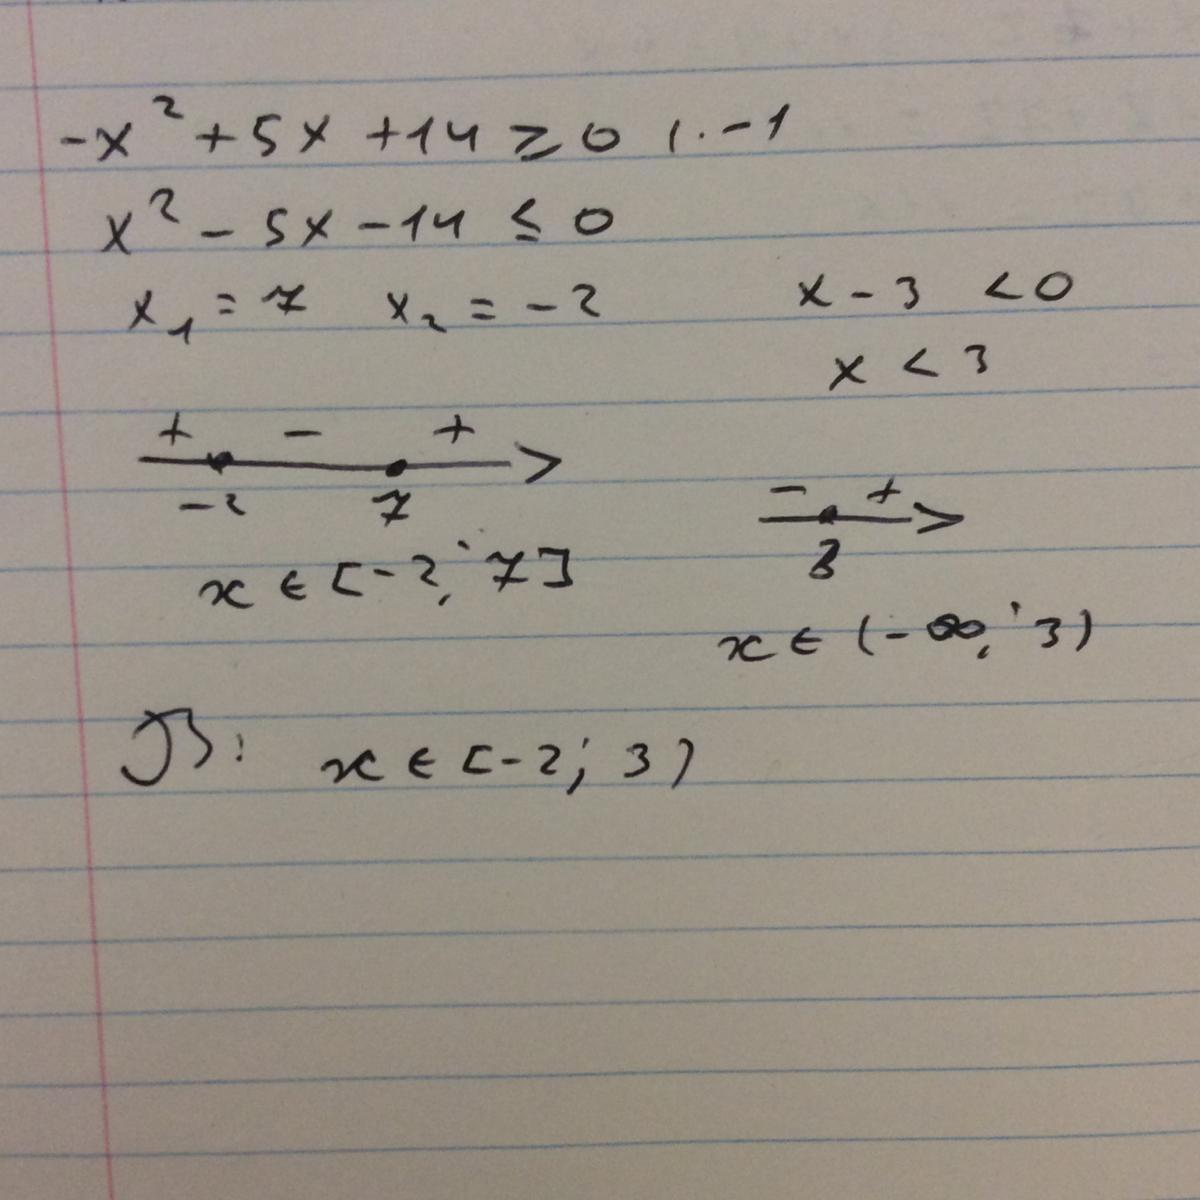 -x² + 5x + 14 ≥ 0 | · -1
x² - 5x - 14 ≤ 0
x₁ = 7 x₂ = -2
x - 3 < 0
x < 3
+ - +
-2 7
x ∈ [-2; 7]
- +
3
x ∈ (-∞; 3)
В: x ∈ [-2; 3)